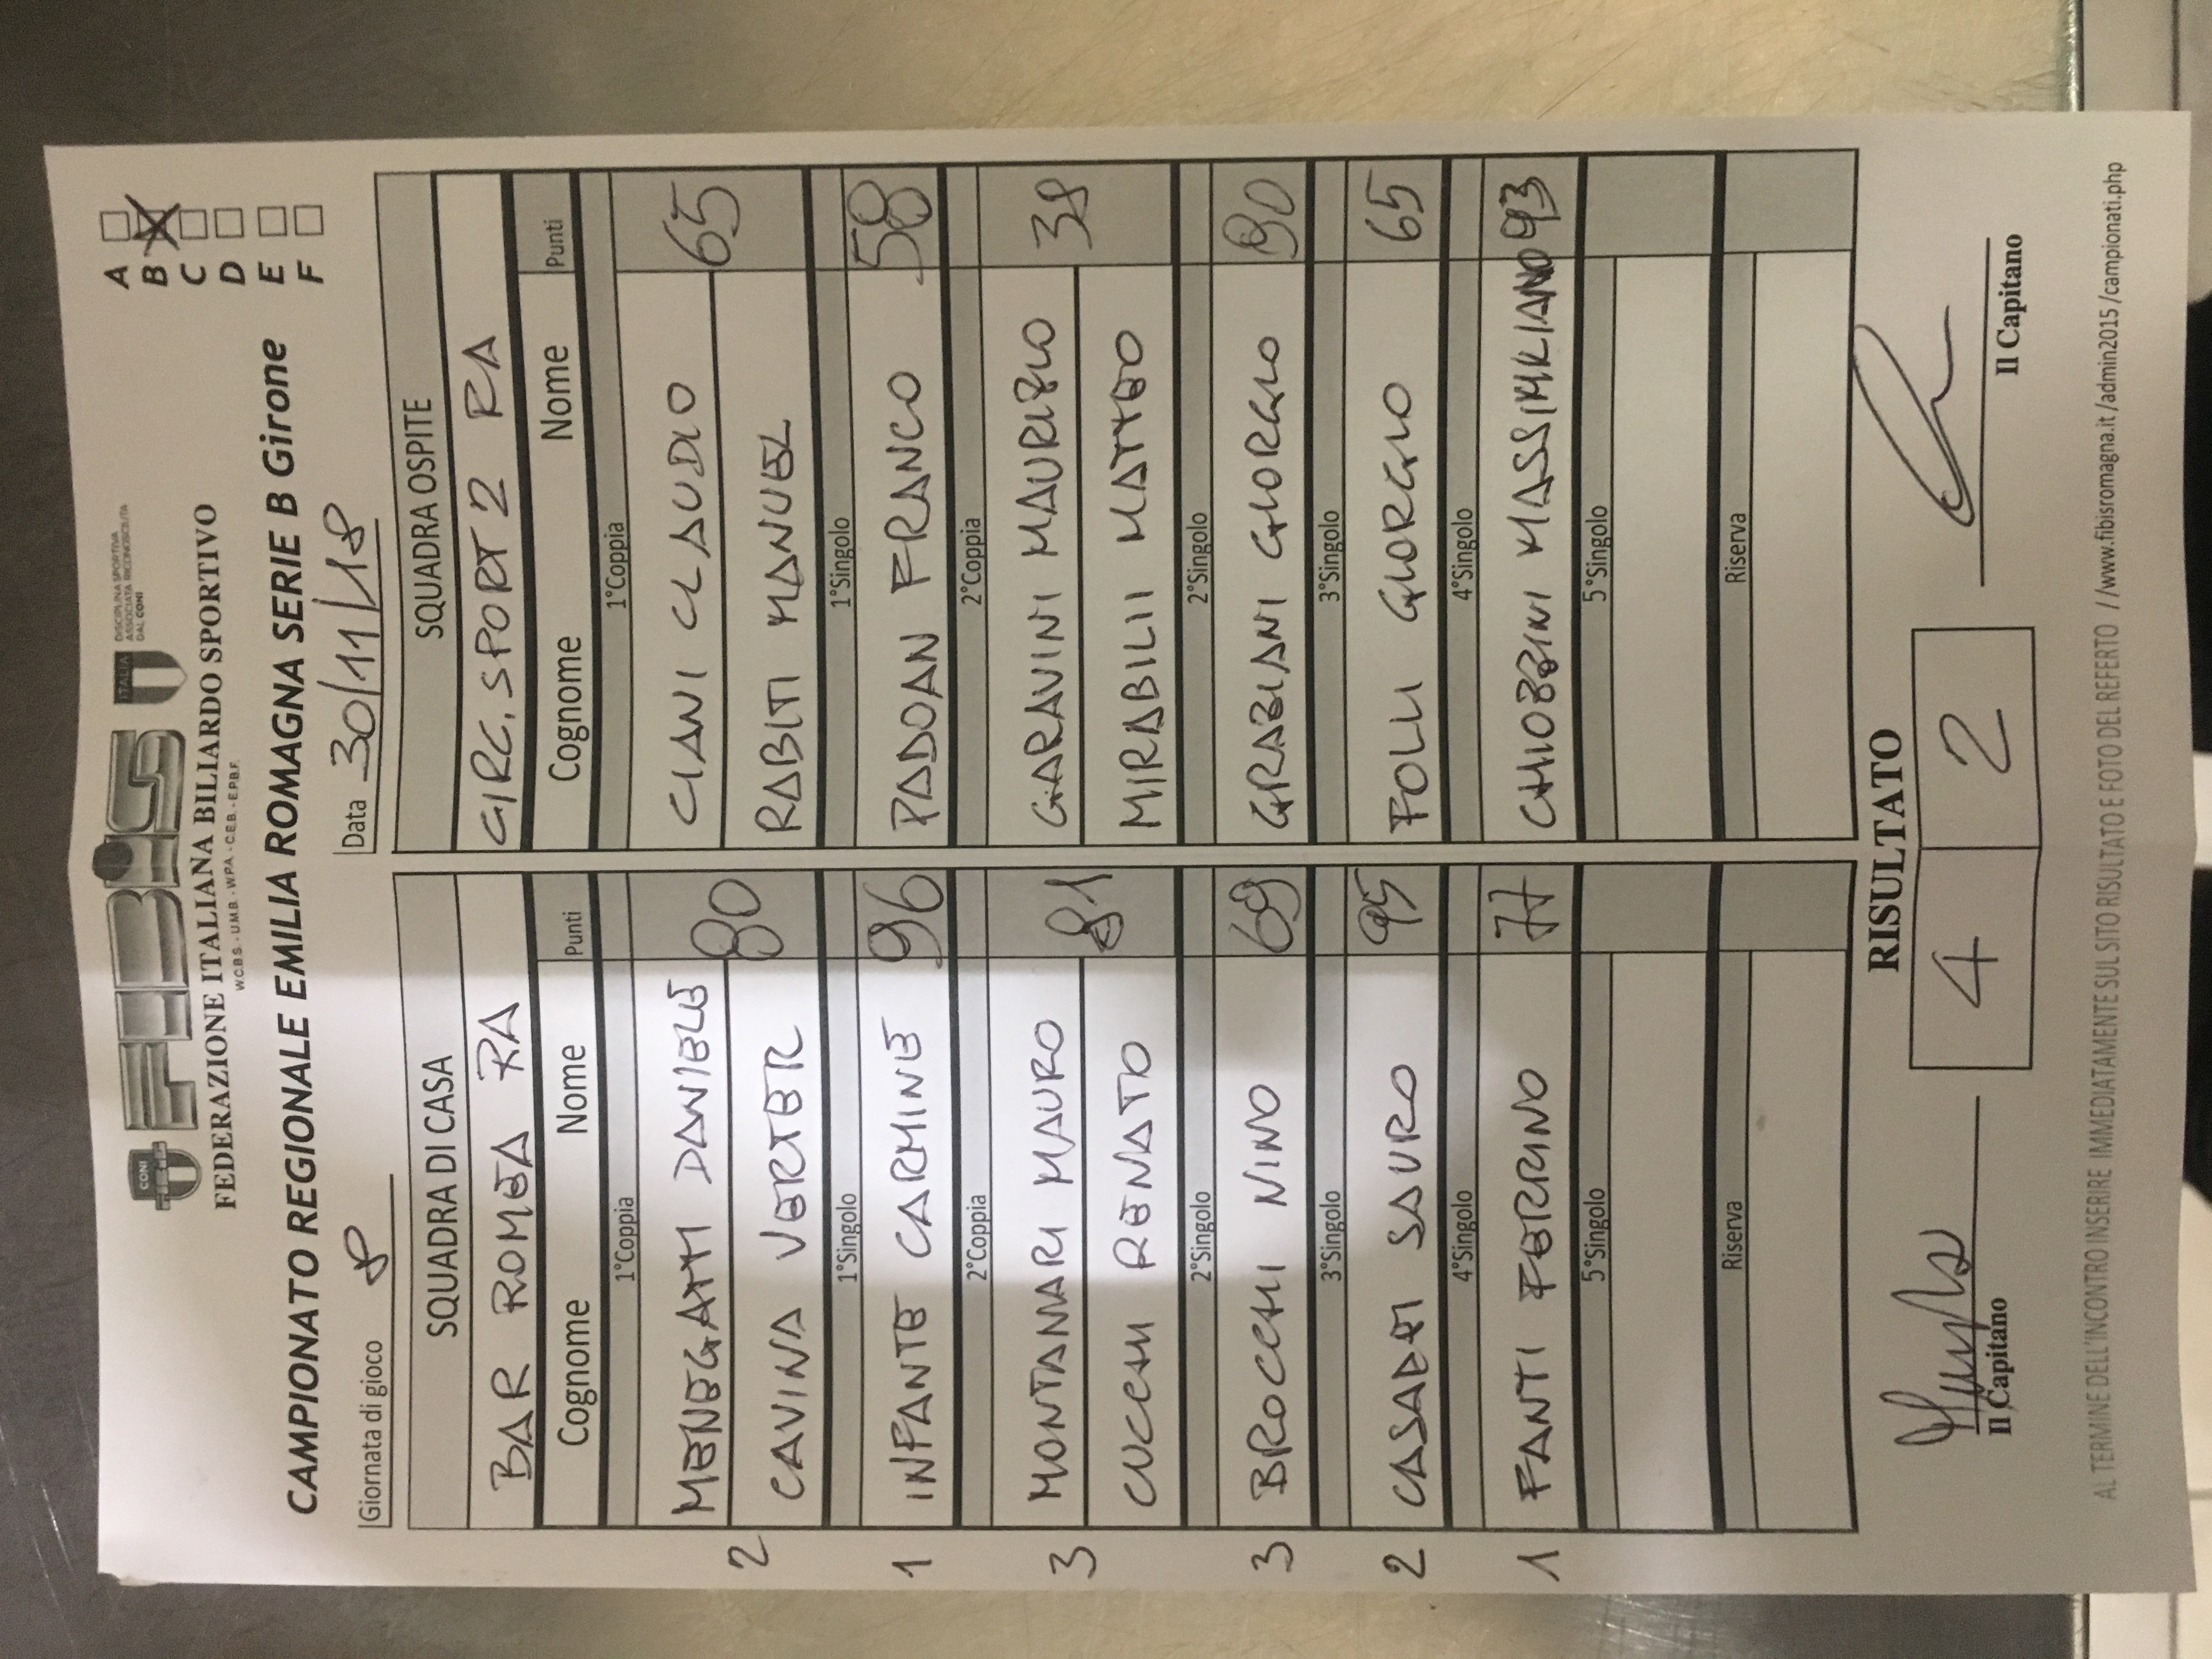 FIBiS
CONI
ITALIA
DISCIPLINA SPORTIVA
ASSOCIATA RICONOSCIUTA
DAL CONI
FEDERAZIONE ITALIANA BILIARDO SPORTIVO
W.C.B.S. - U.M.B. - W.P.A. - C.E.B. - E.P.B.F.
CAMPIONATO REGIONALE EMILIA ROMAGNA SERIE B Girone
A
B X
C
D
E
F
Giornata di gioco 8
Data 30/11/18
SQUADRA DI CASA SQUADRA OSPITE
BAR ROMEA RA CIRC. SPORT 2 RA
Cognome Nome Punti Cognome Nome Punti
1°Coppia 1°Coppia
MENEGATTI DANIELE CIANI CLAUDIO
2 80 65
CAVINA VERTER RABITI MANUEL
1°Singolo 1°Singolo
1 INFANTE CARMINE 96 PADOAN FRANCO 58
2°Coppia 2°Coppia
MONTANARI MAURO GARAVINI MAURIZIO
3 81 38
CUCCHI RENATO MIRABILII MATTEO
2°Singolo 2°Singolo
3 BROCCHI NINO 69 GRAZIANI GIORGIO 90
3°Singolo 3°Singolo
2 CASADEI SAURO 95 FOLLI GIORGIO 65
4°Singolo 4°Singolo
1 FANTI FERRINO 77 CHIOZZINI MASSIMILIANO 93
5°Singolo 5°Singolo
Riserva Riserva
RISULTATO
4 2
Il Capitano Il Capitano
AL TERMINE DELL'INCONTRO INSERIRE IMMEDIATAMENTE SUL SITO RISULTATO E FOTO DEL REFERTO //www.fibisromagna.it/admin2015/campionati.php